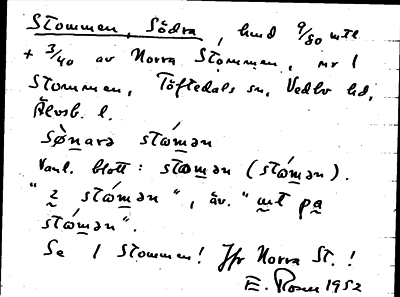 Stommen, Södra, hmd 9/80 mtl
+ 3/40 av Norra Stommen, nr 1
Stommen, Töftedals sn, Vedbo hd,
Älvsb. l.
sǿnarə stómən
Vanl. blott: stomən (stómən).
"i stómən", äv. "ut pa
stómən".
Se 1 Stommen! Jfr Norra St.!
E. Rosén 1952